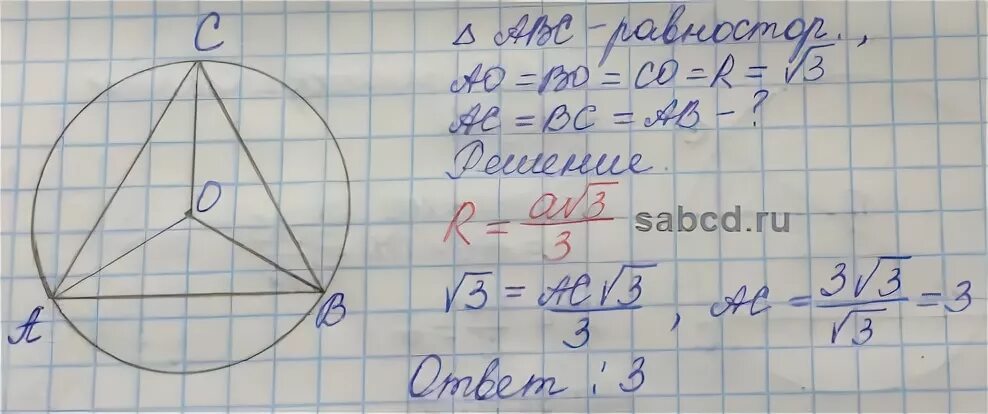 C
O
A
B
Δ ABC - равностор.,
AO = BO = CO = R = √3
AC = BC = AB - ?
Решение.
R = a√3/3
sabcd.ru
√3 = AC√3/3 , AC = 3√3/√3 = 3
Ответ : 3